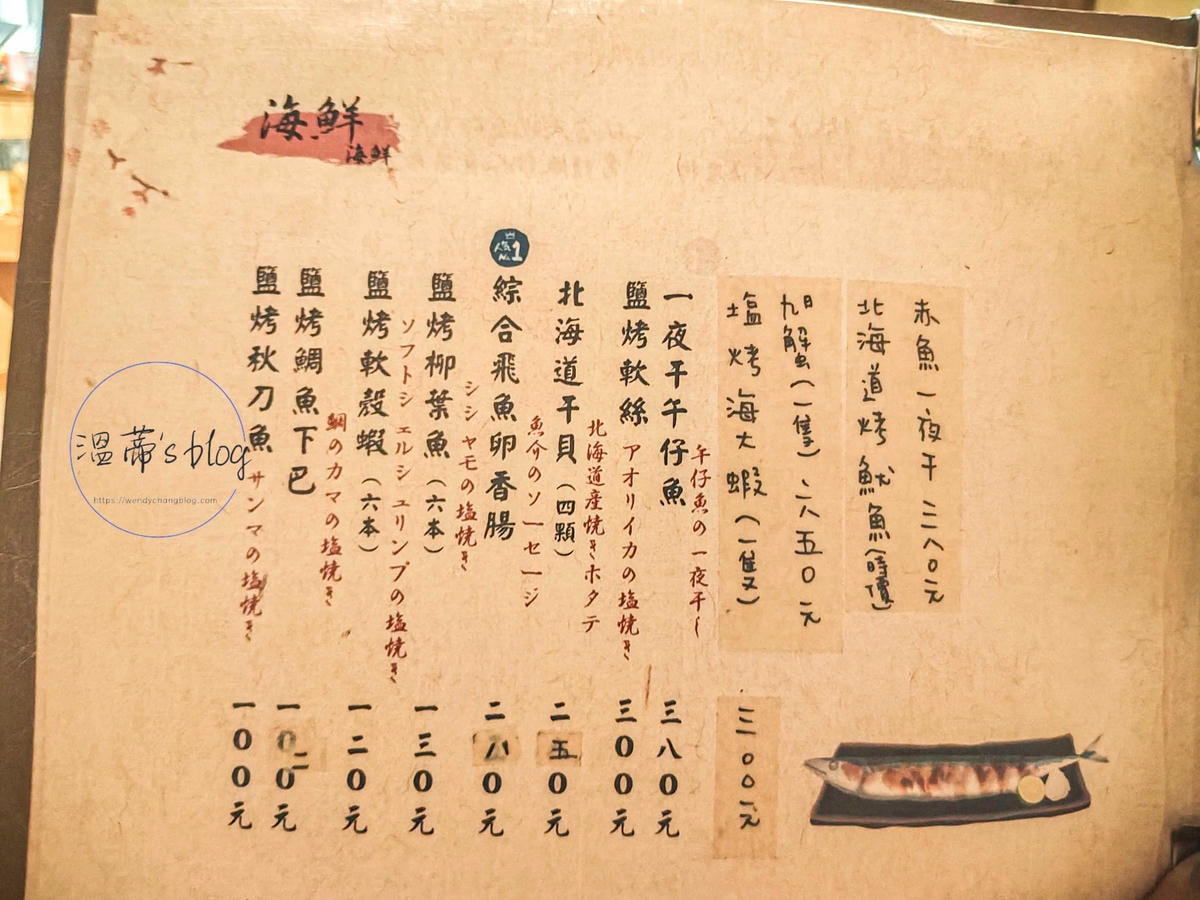 海鮮
海鮮
赤魚一夜干 三八0元
北海道烤魷魚(時價)
旭蟹(一隻) 二八五0元
塩烤海大蝦(一隻) 三00元
午仔魚の一夜干し
一夜干午仔魚 三八0元
アオリイカの塩焼き
鹽烤軟絲 三00元
北海道産焼きホタテ
北海道干貝(四顆) 二五0元
魚介のソーセージ
人気No.1
綜合飛魚卵香腸 二八0元
シシャモの塩焼き
鹽烤柳葉魚(六本) 一三0元
ソフトシェルシュリンプの塩焼き
鹽烤軟殼蝦(六本) 一二0元
鯛のカマの塩焼き
鹽烤鯛魚下巴 一二0元
サンマの塩焼き
鹽烤秋刀魚 一00元
溫蒂's blog
https://wendychangblog.com